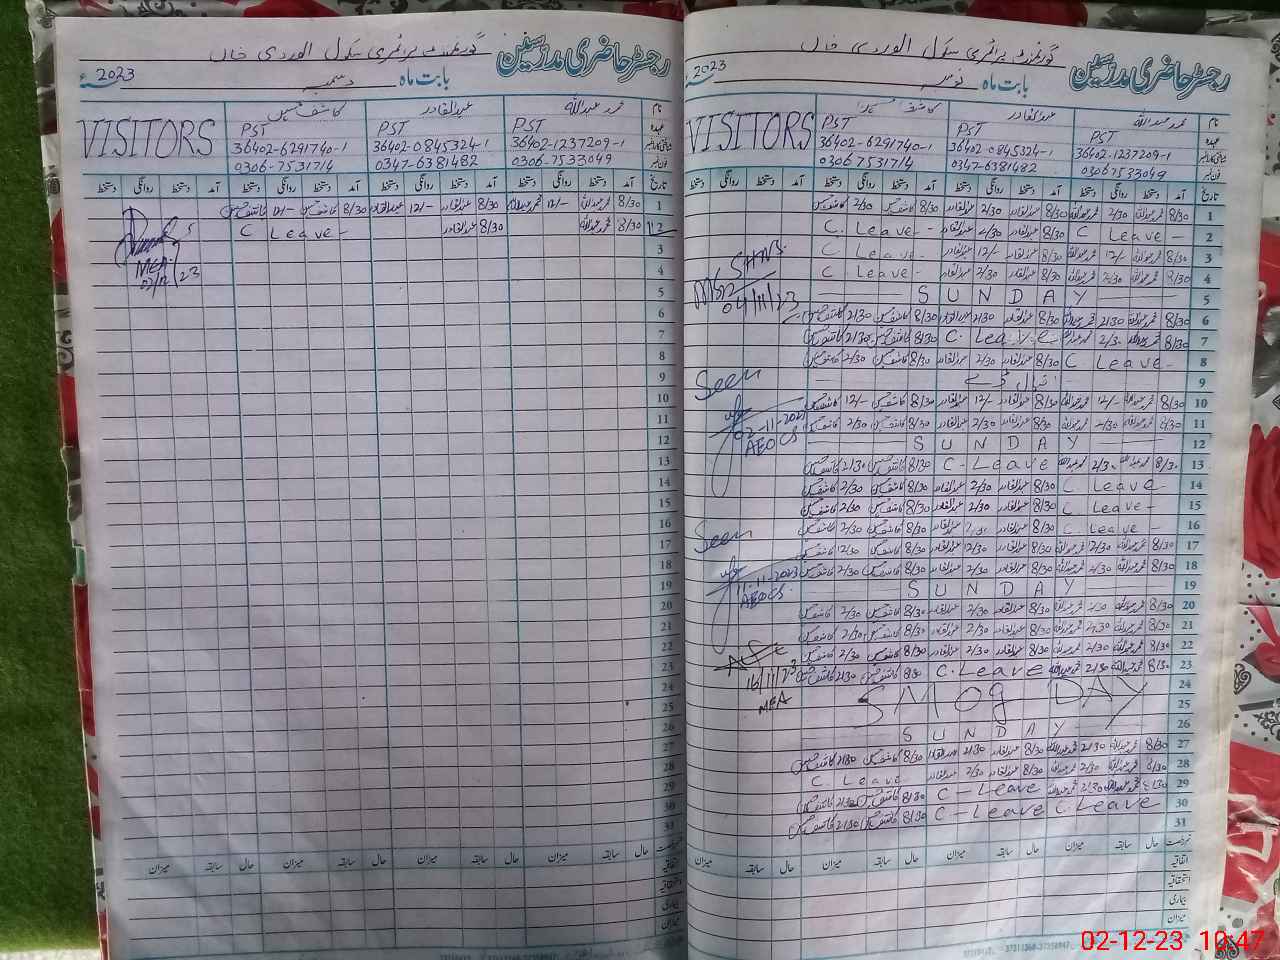 گورنمنٹ پرائمری سکول الوردی خاں
رجسٹر حاضری مدرسین
بابت ماہ دسمبر 2023ء
نام محمد عبداللہ عبدالقادر کاشف حسین VISITORS
عہدہ PST PST PST
36402-1237209-1 36402-0845324-1 36402-6291740-1
فون نمبر 0306-7533049 0347-6381482 0306-7531714
تاریخ آمد دستخط روانگی دستخط آمد دستخط روانگی دستخط آمد دستخط روانگی دستخط آمد دستخط روانگی دستخط
1 8/30 محمد عبداللہ 12/- محمد عبداللہ 8/30 عبدالقادر 12/- عبدالقادر 8/30 کاشف حسین 12/- کاشف حسین
2 8/30 محمد عبداللہ 8/30 عبدالقادر C Leave -
3
4
5
6
7
8
9
10
11
12
13
14
15
16
17
18
19
20
21
22
23
24
25
26
27
28
29
30
31
MEA
02/12/23
حال سابقہ میزان حال سابقہ میزان حال سابقہ میزان حال سابقہ میزان
اتفاقیہ
استحقاقیہ
بیماری
میزان
گورنمنٹ پرائمری سکول الوردی خاں
رجسٹر حاضری مدرسین
بابت ماہ نومبر 2023ء
نام محمد عبداللہ عبدالقادر کاشف حسین VISITORS
عہدہ PST PST PST
36402-1237209-1 36402-0845324-1 36402-6291740-1
فون نمبر 03067533049 0347-6381482 0306-7531714
تاریخ آمد دستخط روانگی دستخط آمد دستخط روانگی دستخط آمد دستخط روانگی دستخط آمد دستخط روانگی دستخط
1 8/30 محمد عبداللہ 2/30 محمد عبداللہ 8/30 عبدالقادر 2/30 عبدالقادر 8/30 کاشف حسین 2/30 کاشف حسین
2 C Leave - 8/30 عبدالقادر 2/30 عبدالقادر C. Leave -
3 8/30 محمد عبداللہ 12/- محمد عبداللہ 8/30 عبدالقادر 12/- عبدالقادر C Leave -
4 8/30 محمد عبداللہ 2/30 محمد عبداللہ 8/30 عبدالقادر 2/30 عبدالقادر C Leave -
5 SUNDAY
6 8/30 محمد عبداللہ 2/30 محمد عبداللہ 8/30 عبدالقادر 2/30 عبدالقادر 8/30 کاشف حسین 2/30 کاشف حسین
7 8/30 محمد عبداللہ 2/30 محمد عبداللہ C. Leave 8/30 کاشف حسین 2/30 کاشف حسین
8 C. Leave - 8/30 عبدالقادر 2/30 عبدالقادر 8/30 کاشف حسین 2/30 کاشف حسین
9
10 8/30 محمد عبداللہ 12/- محمد عبداللہ 8/30 عبدالقادر 12/- عبدالقادر 8/30 کاشف حسین 12/- کاشف حسین
11 8/30 محمد عبداللہ 2/30 محمد عبداللہ 8/30 عبدالقادر 2/30 عبدالقادر 8/30 کاشف حسین 2/30 کاشف حسین
12 SUNDAY
13 8/30 محمد عبداللہ 2/30 محمد عبداللہ C-Leave 8/30 کاشف حسین 2/30 کاشف حسین
14 C Leave - 8/30 عبدالقادر 2/30 عبدالقادر 8/30 کاشف حسین 2/30 کاشف حسین
15 C Leave - 8/30 عبدالقادر 2/30 عبدالقادر 8/30 کاشف حسین 2/30 کاشف حسین
16 C Leave - 8/30 عبدالقادر 2/30 عبدالقادر 8/30 کاشف حسین 2/30 کاشف حسین
17 8/30 محمد عبداللہ 2/30 محمد عبداللہ 8/30 عبدالقادر 12/30 عبدالقادر 8/30 کاشف حسین 12/30 کاشف حسین
18 8/30 محمد عبداللہ 2/30 محمد عبداللہ 8/30 عبدالقادر 2/30 عبدالقادر 8/30 کاشف حسین 2/30 کاشف حسین
19 SUNDAY
20 8/30 محمد عبداللہ 2/30 محمد عبداللہ 8/30 عبدالقادر 2/30 عبدالقادر 8/30 کاشف حسین 2/30 کاشف حسین
21 8/30 محمد عبداللہ 2/30 محمد عبداللہ 8/30 عبدالقادر 2/30 عبدالقادر 8/30 کاشف حسین 2/30 کاشف حسین
22 8/30 محمد عبداللہ 2/30 محمد عبداللہ 8/30 عبدالقادر 2/30 عبدالقادر 8/30 کاشف حسین 2/30 کاشف حسین
23 8/30 محمد عبداللہ 2/30 محمد عبداللہ C.Leave 8/30 کاشف حسین 2/30 کاشف حسین
24
25 SMOg DAY
26 SUNDAY
27 8/30 محمد عبداللہ 2/30 محمد عبداللہ 8/30 عبدالقادر 2/30 عبدالقادر 8/30 کاشف حسین 2/30 کاشف حسین
28 8/30 محمد عبداللہ 2/30 محمد عبداللہ 8/30 عبدالقادر 2/30 عبدالقادر C Leave
29 8/30 محمد عبداللہ 2/30 محمد عبداللہ C - Leave 8/30 کاشف حسین 2/30 کاشف حسین
30 C Leave C - Leave 8/30 کاشف حسین 2/30 کاشف حسین
31
04/11/23
Seen
02-11-2023
AEOCS
Seen
11-11-2023
AEOCS
16/11/23
MEA
حال سابقہ میزان حال سابقہ میزان حال سابقہ میزان حال سابقہ میزان
اتفاقیہ
استحقاقیہ
بیماری
میزان
02-12-23 10:47